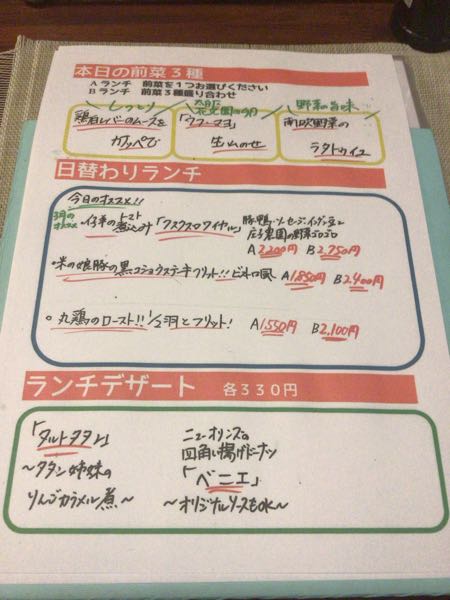 本日の前菜３種
Ａランチ　前菜を１つお選びください
Ｂランチ　前菜３種盛り合わせ
しっとり
野菜の旨味
鶏白レバーのムースを
カナッペで
「ウフーマヨ」
生ハムのせ
南欧野菜の
ラタトゥイユ
日替わりランチ
今日のオススメ!!
3月のオススメ
・仔羊のトマト煮込み「クスクスロワイヤル」
豚鴨ソーセージ、インゲン豆と
庄子農園の野菜ゴロゴロ
A 2200円　B 2,750円
・米の娘豚の黒コショウステーキフリット!! ビストロ風　A 1,850円　B 2,400円
。丸鶏のロースト!! 1/2羽とフリット!　A 1,550円　B 2,100円
ランチデザート　各３３０円
「タルトタタン」
〜タタン姉妹の
りんごカラメル煮〜
ニューオリンズの
四角い揚げドーナツ
「ベニエ」
〜オリジナルソースもok〜